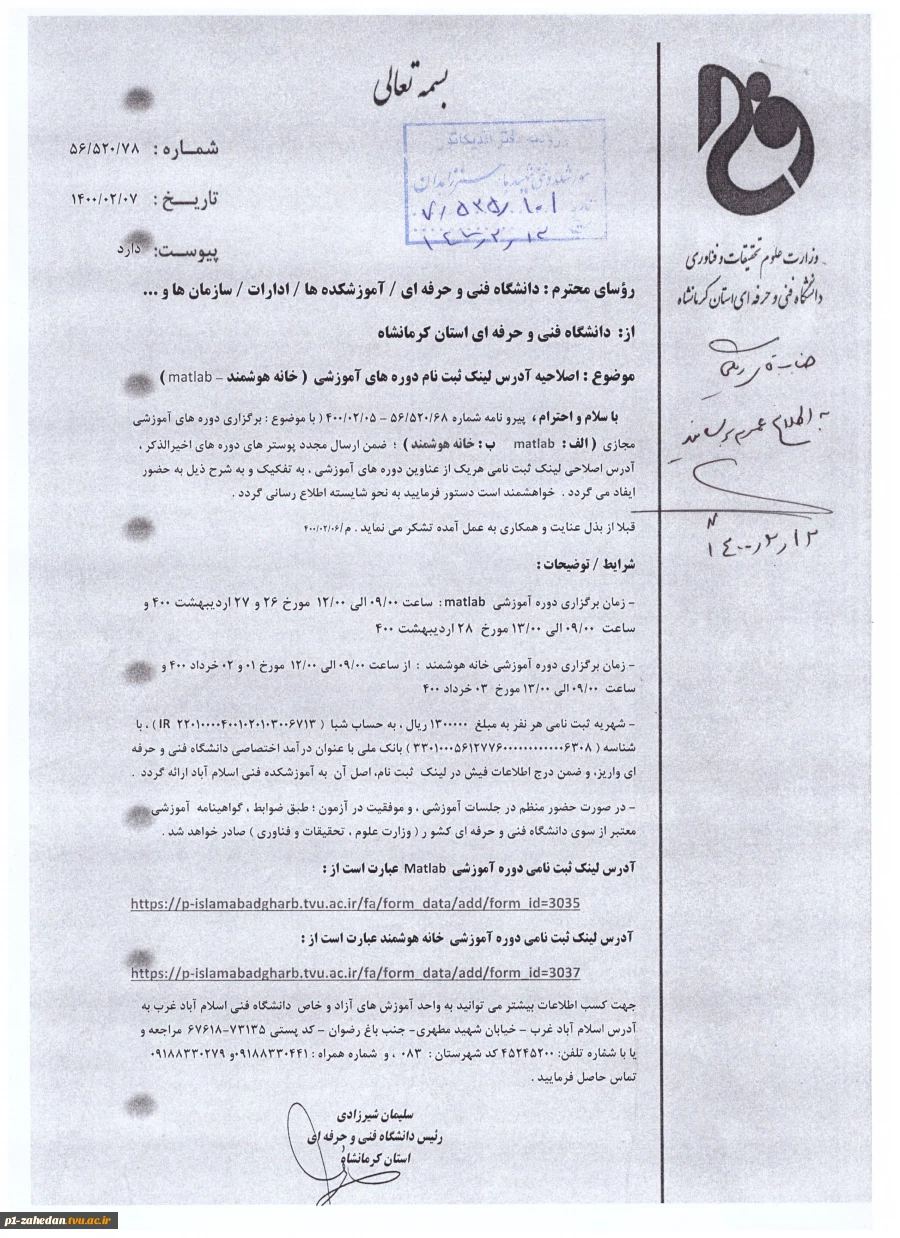 بسمه تعالی
شماره : ۵۶/۵۲۰/۷۸
تاریخ : ۱۴۰۰/۰۲/۰۷
پیوست: دارد
وزارت علوم تحقیقات و فناوری
دانشگاه فنی و حرفه ای استان کرمانشاه
به اطلاع عموم برسانید
رؤسای محترم : دانشگاه فنی و حرفه ای / آموزشکده ها / ادارات / سازمان ها و ...
از: دانشگاه فنی و حرفه ای استان کرمانشاه
موضوع : اصلاحیه آدرس لینک ثبت نام دوره های آموزشی ( خانه هوشمند – matlab )
با سلام و احترام ، پیرو نامه شماره ۵۶/۵۲۰/۶۸ – ۴۰۰/۰۲/۰۵ ( با موضوع : برگزاری دوره های آموزشی
مجازی ( الف : matlab ب : خانه هوشمند ) ؛ ضمن ارسال مجدد پوستر های دوره های اخیرالذکر ،
آدرس اصلاحی لینک ثبت نامی هریک از عناوین دوره های آموزشی ، به تفکیک و به شرح ذیل به حضور
ایفاد می گردد . خواهشمند است دستور فرمایید به نحو شایسته اطلاع رسانی گردد .
قبلا از بذل عنایت و همکاری به عمل آمده تشکر می نماید . م/۴۰۰/۰۲/۰۶
شرایط / توضیحات :
- زمان برگزاری دوره آموزشی matlab : ساعت ۰۹/۰۰ الی ۱۲/۰۰ مورخ ۲۶ و ۲۷ اردیبهشت ۴۰۰ و
ساعت ۰۹/۰۰ الی ۱۳/۰۰ مورخ ۲۸ اردیبهشت ۴۰۰
- زمان برگزاری دوره آموزشی خانه هوشمند : از ساعت ۰۹/۰۰ الی ۱۲/۰۰ مورخ ۰۱ و ۰۲ خرداد ۴۰۰ و
ساعت ۰۹/۰۰ الی ۱۳/۰۰ مورخ ۰۳ خرداد ۴۰۰
- شهریه ثبت نامی هر نفر به مبلغ ۱۳۰۰۰۰۰ ریال ، به حساب شبا ( IR ۲۲۰۱۰۰۰۰۴۰۰۱۰۲۰۱۰۳۰۰۶۷۱۳ ) ، با
شناسه ( ۳۳۰۱۰۰۰۵۶۱۲۷۷۶۰۰۰۰۰۰۰۰۰۰۰۰۶۳۰۸ ) بانک ملی با عنوان درآمد اختصاصی دانشگاه فنی و حرفه
ای واریز، و ضمن درج اطلاعات فیش در لینک ثبت نام، اصل آن به آموزشکده فنی اسلام آباد ارائه گردد .
- در صورت حضور منظم در جلسات آموزشی ، و موفقیت در آزمون ؛ طبق ضوابط ، گواهینامه آموزشی
معتبر از سوی دانشگاه فنی و حرفه ای کشو ر ( وزارت علوم ، تحقیقات و فناوری ) صادر خواهد شد .
آدرس لینک ثبت نامی دوره آموزشی Matlab عبارت است از :
https://p-islamabadgharb.tvu.ac.ir/fa/form_data/add/form_id=3035
آدرس لینک ثبت نامی دوره آموزشی خانه هوشمند عبارت است از :
https://p-islamabadgharb.tvu.ac.ir/fa/form_data/add/form_id=3037
جهت کسب اطلاعات بیشتر می توانید به واحد آموزش های آزاد و خاص دانشگاه فنی اسلام آباد غرب به
آدرس اسلام آباد غرب – خیابان شهید مطهری- جنب باغ رضوان – کد پستی ۷۳۱۳۵-۶۷۶۱۸ مراجعه و
یا با شماره تلفن: ۴۵۲۴۵۲۰۰ کد شهرستان : ۰۸۳ ، و شماره همراه : ۰۹۱۸۸۳۳۰۴۴۱ و ۰۹۱۸۸۳۳۰۲۷۹
تماس حاصل فرمایید .
سلیمان شیرزادی
رئیس دانشگاه فنی و حرفه ای
استان کرمانشاه
p1-zahedan.tvu.ac.ir